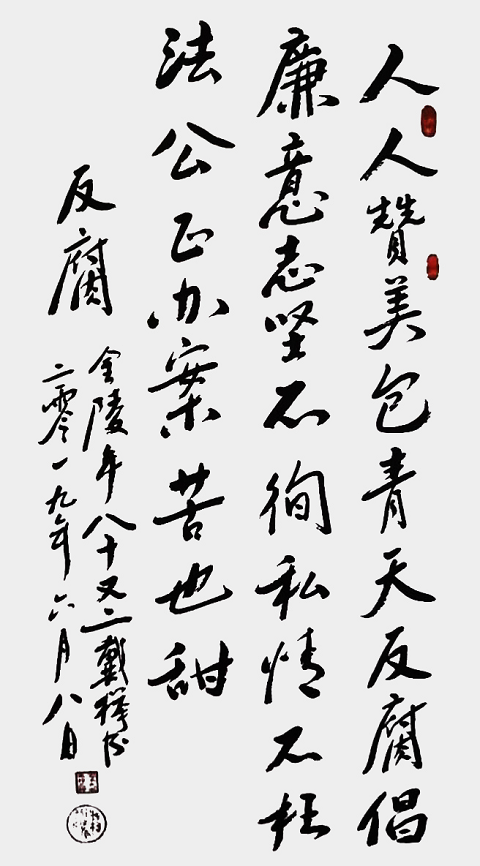 人人贊美包青天反腐倡
廉意志坚不徇私情不枉
法公正办案苦也甜
反腐
金陵年八十又二戴
二零一九年六月八日